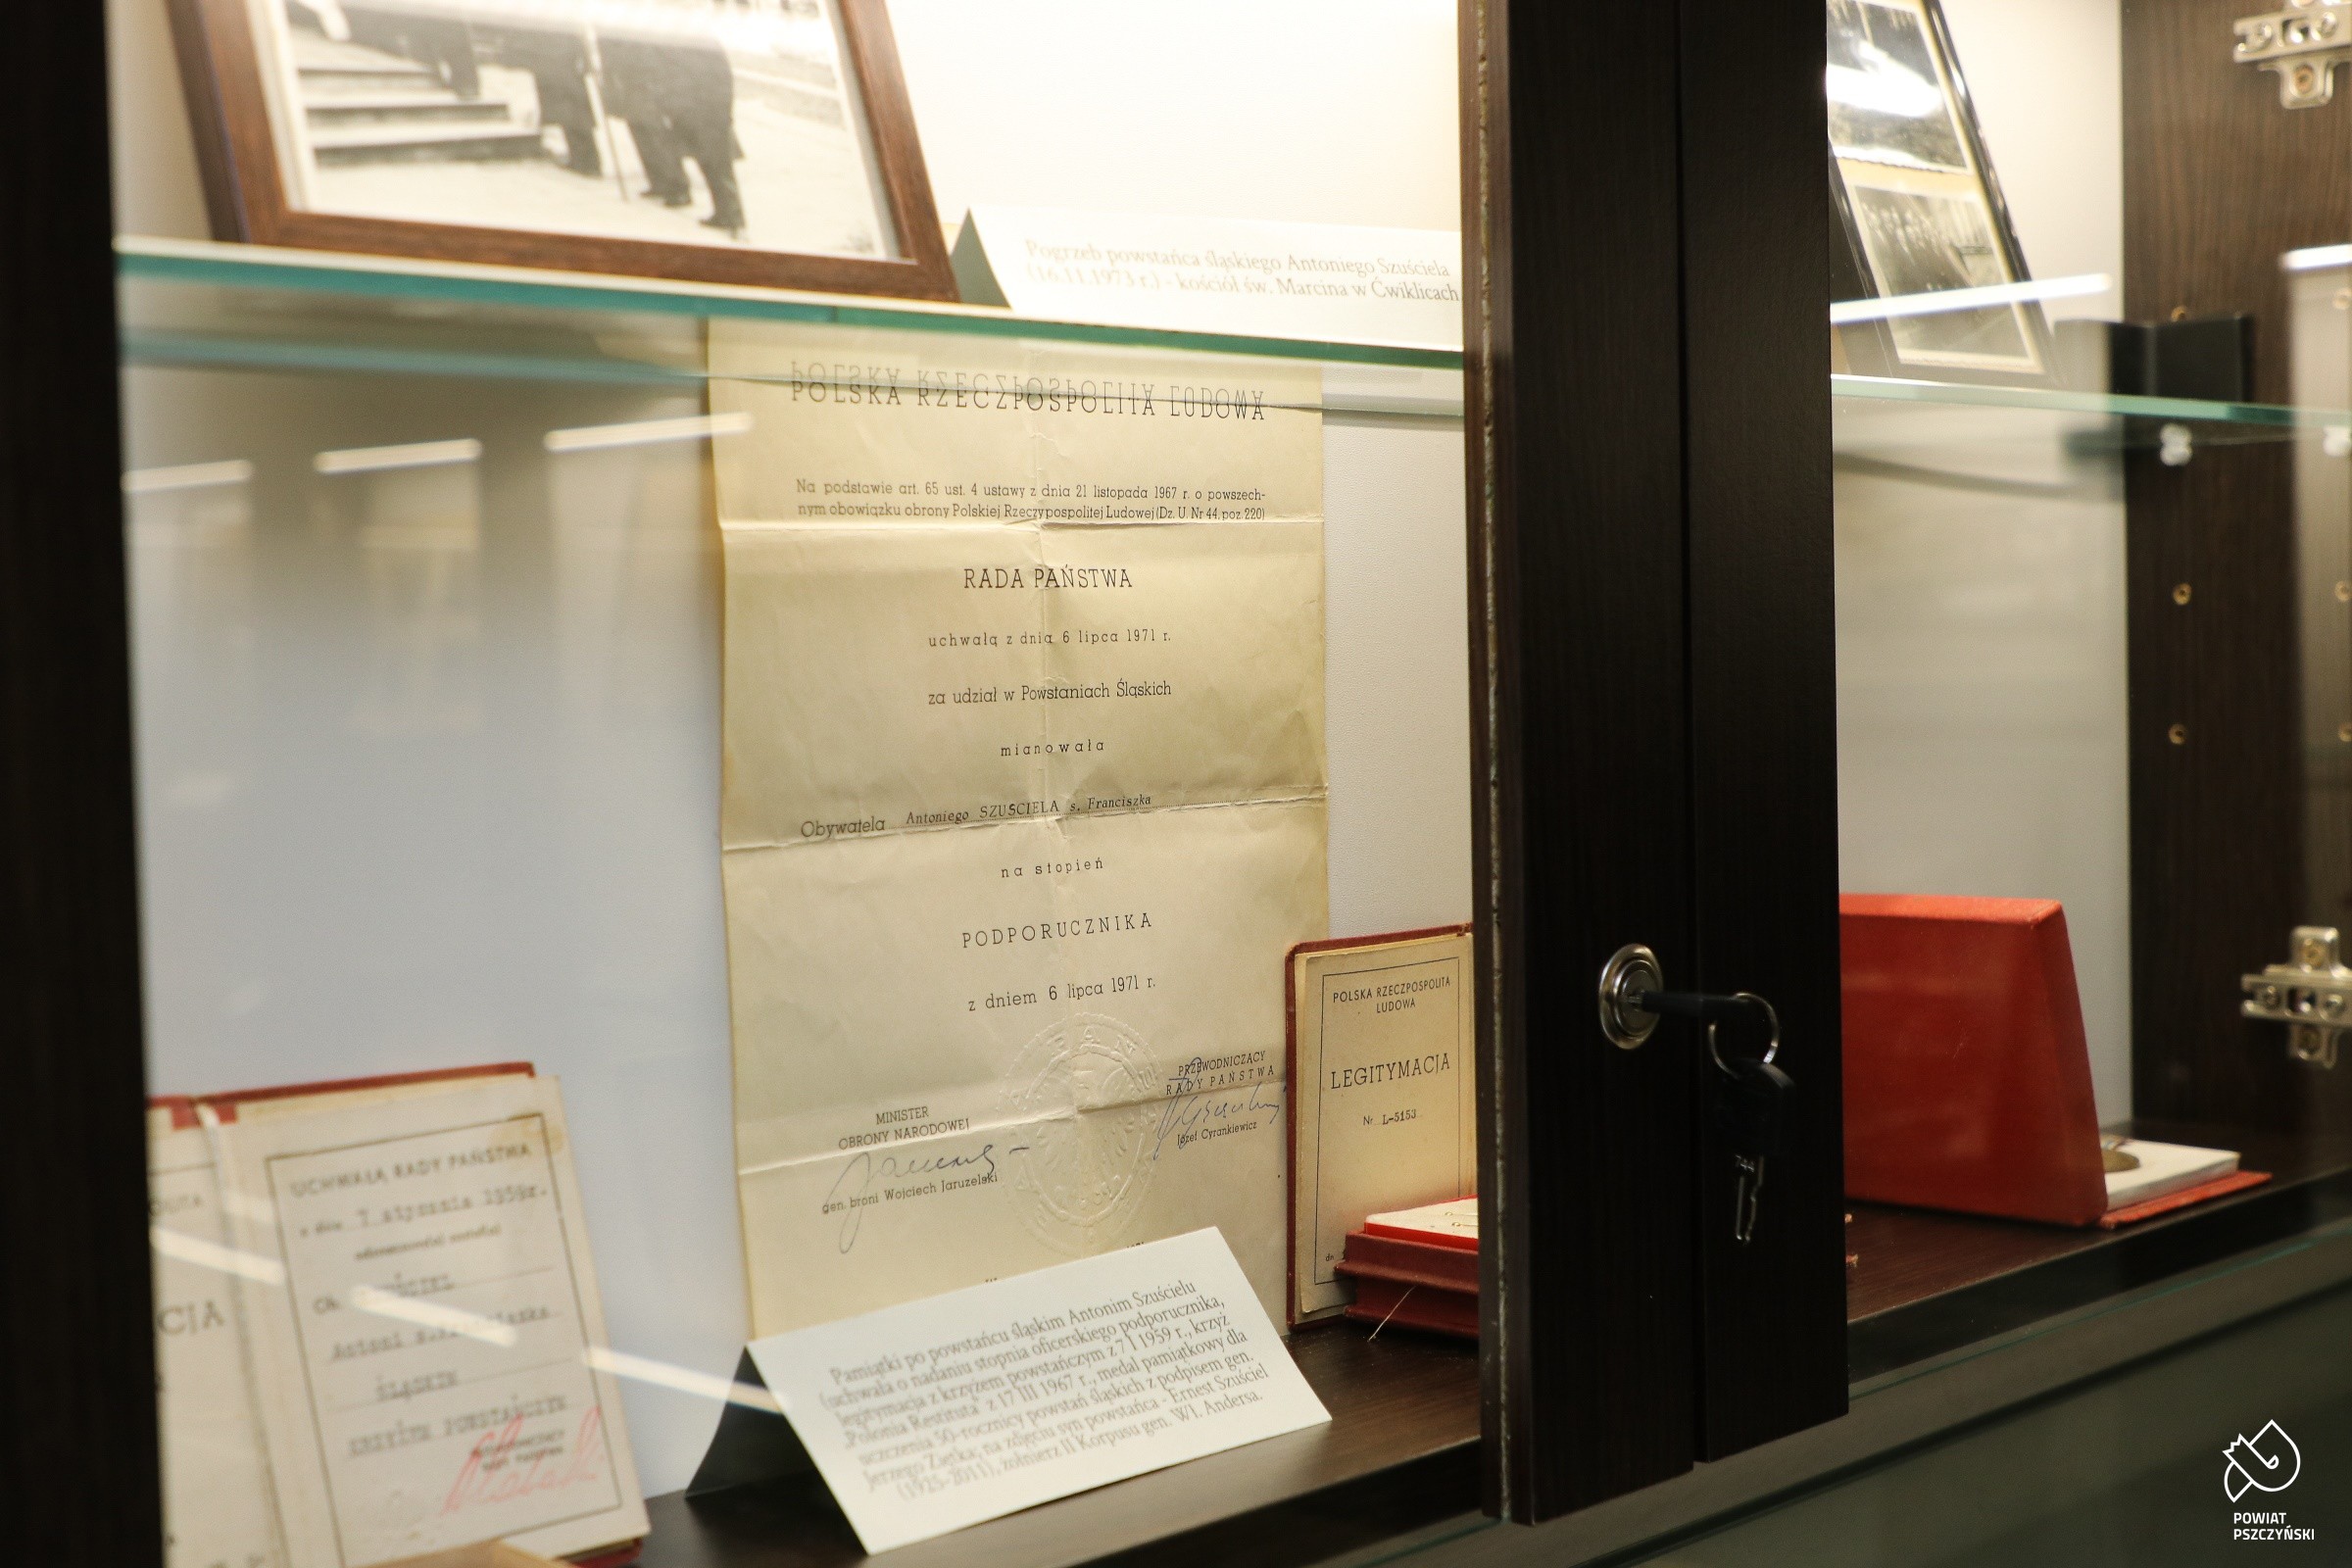 Pogrzeb powstańca śląskiego Antoniego Szuściela
(16.11.1973 r.) - kościół św. Marcina w Ćwiklicach
POLSKA RZECZPOSPOLITA LUDOWA
Na podstawie art. 65 ust. 4 ustawy z dnia 21 listopada 1967 r. o powszech-
nym obowiązku obrony Polskiej Rzeczypospolitej Ludowej (Dz. U. Nr 44, poz. 220)
RADA PAŃSTWA
uchwałą z dnia 6 lipca 1971 r.
za udział w Powstaniach Śląskich
mianowała
Obywatela Antoniego SZUŚCIELA s. Franciszka
na stopień
PODPORUCZNIKA
z dniem 6 lipca 1971 r.
MINISTER
OBRONY NARODOWEJ
gen. broni Wojciech Jaruzelski
PRZEWODNICZĄCY
RADY PAŃSTWA
Józef Cyrankiewicz
POLSKA RZECZPOSPOLITA
LUDOWA
LEGITYMACJA
Nr L-5153
dn
CJA
UCHWAŁĄ RADY PAŃSTWA
z dnia 7 stycznia 1959r.
odznaczony(a) został(a)
Ob.
Antoni
ŚLĄSKIM
KRZYŻEM POWSTAŃCZYM
PRZEWODNICZĄCY
RADY PAŃSTWA
Pamiątki po powstańcu śląskim Antonim Szuścielu
(uchwała o nadaniu stopnia oficerskiego podporucznika,
legitymacja z krzyżem powstańczym z 7 I 1959 r., krzyż
„Polonia Restituta" z 17 III 1967 r., medal pamiątkowy dla
uczczenia 50-rocznicy powstań śląskich z podpisem gen.
Jerzego Ziętka; na zdjęciu syn powstańca - Ernest Szuściel
(1925-2011), żołnierz II Korpusu gen. Wł. Andersa.
744
POWIAT
PSZCZYŃSKI